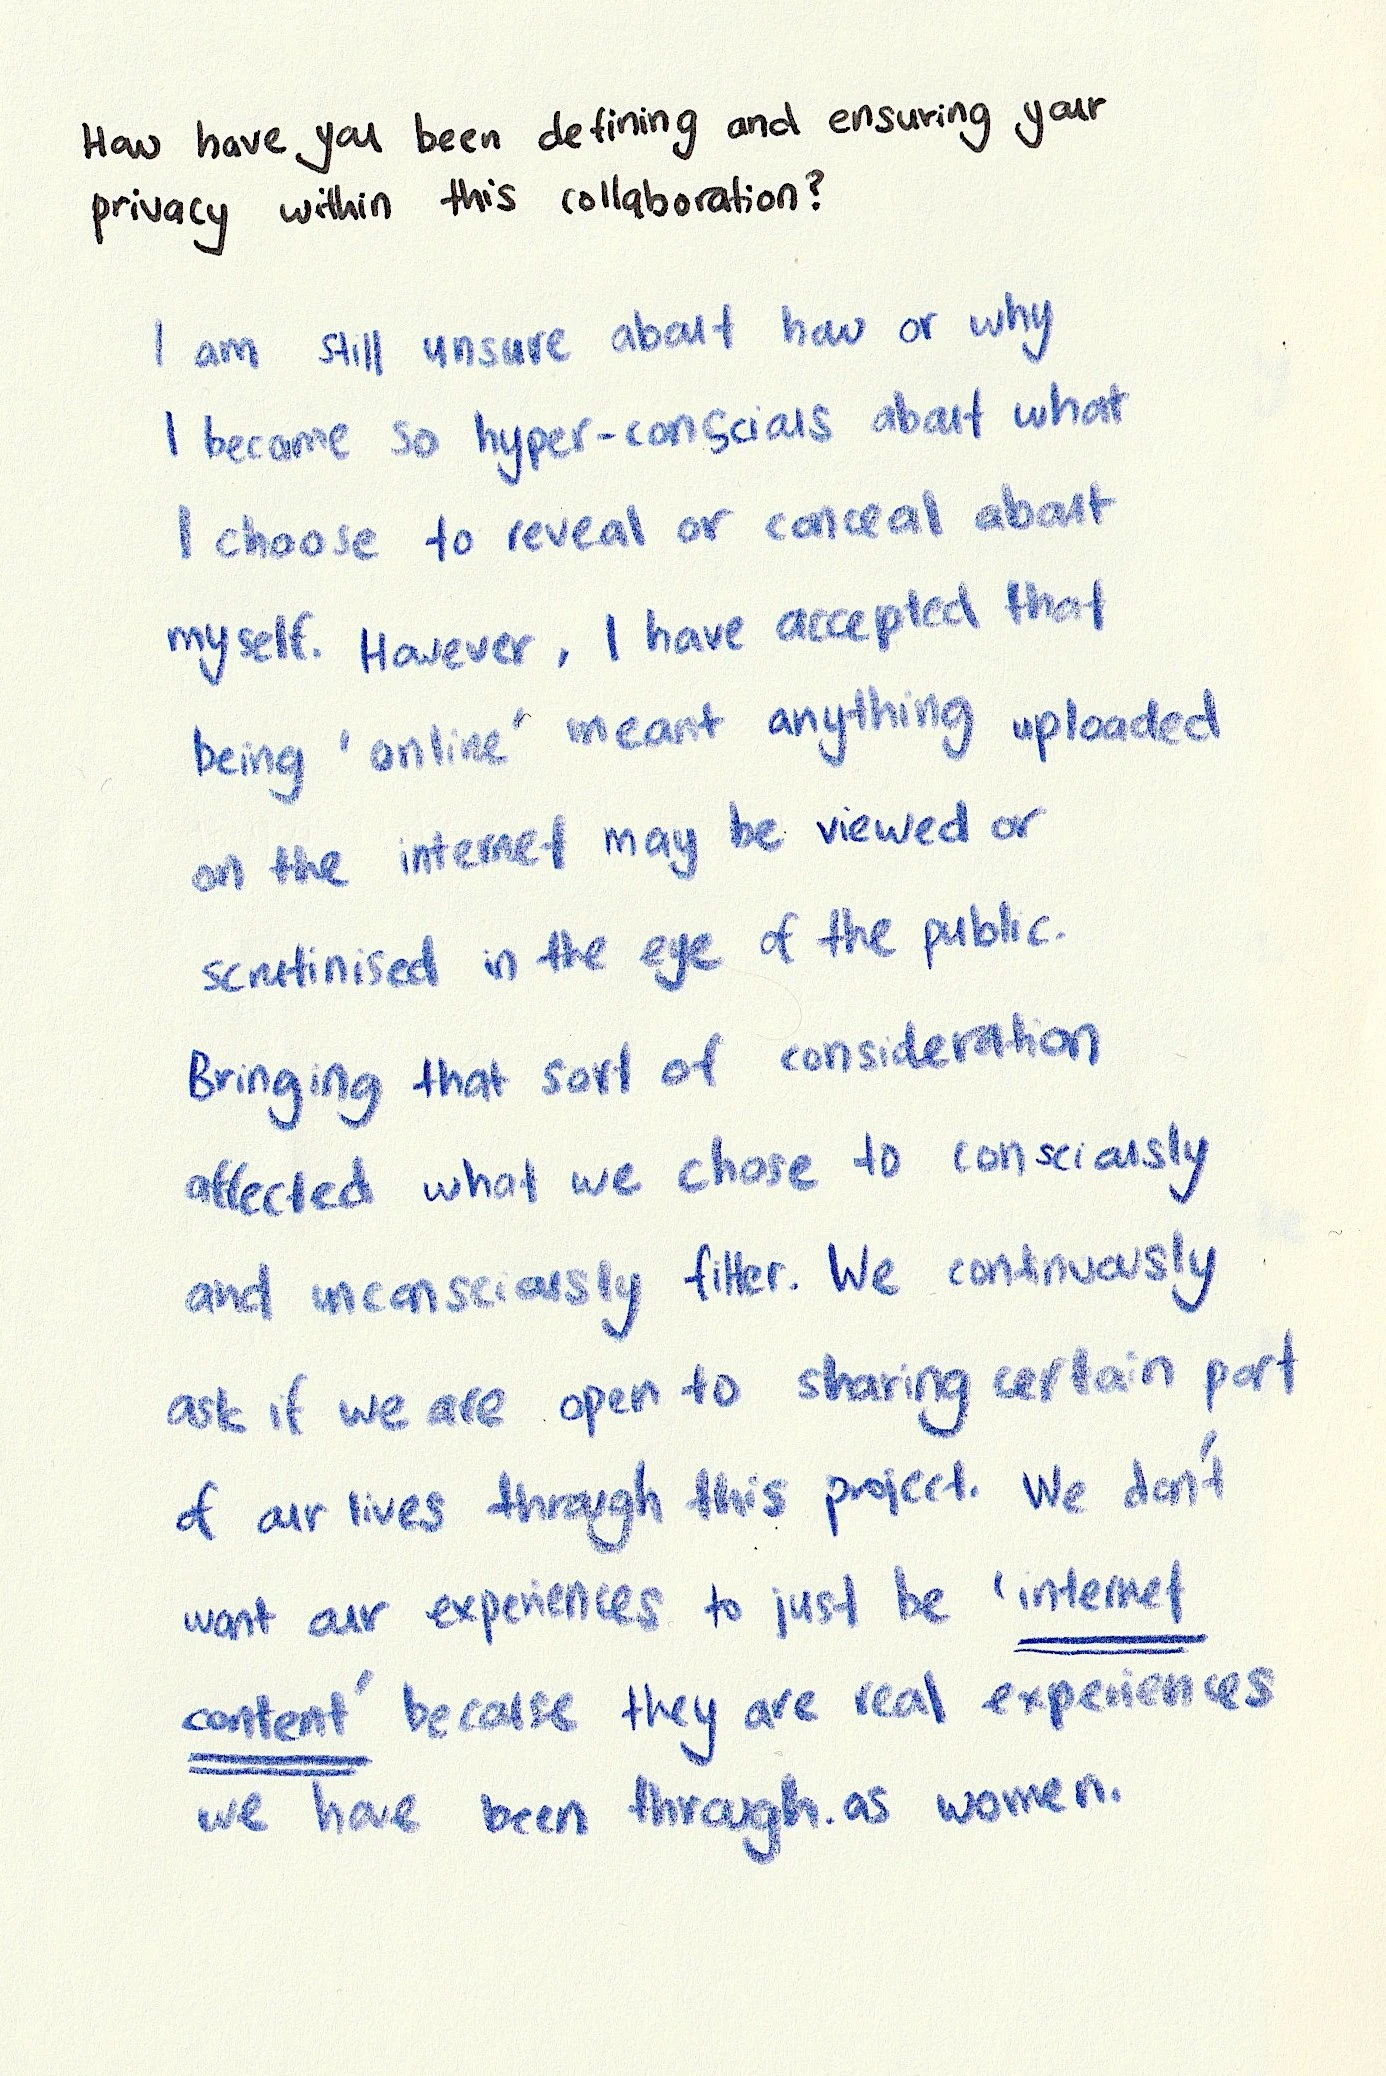 How have you been defining and ensuring your
privacy within this collaboration?
I am still unsure about how or why
I became so hyper-conscious about what
I choose to reveal or conceal about
myself. However, I have accepted that
being 'online' meant anything uploaded
on the internet may be viewed or
scrutinised in the eye of the public.
Bringing that sort of consideration
affected what we chose to consciously
and unconsciously filter. We continuously
ask if we are open to sharing certain part
of our lives through this project. We don't
want our experiences to just be 'internet
content' because they are real experiences
we have been through. as women.